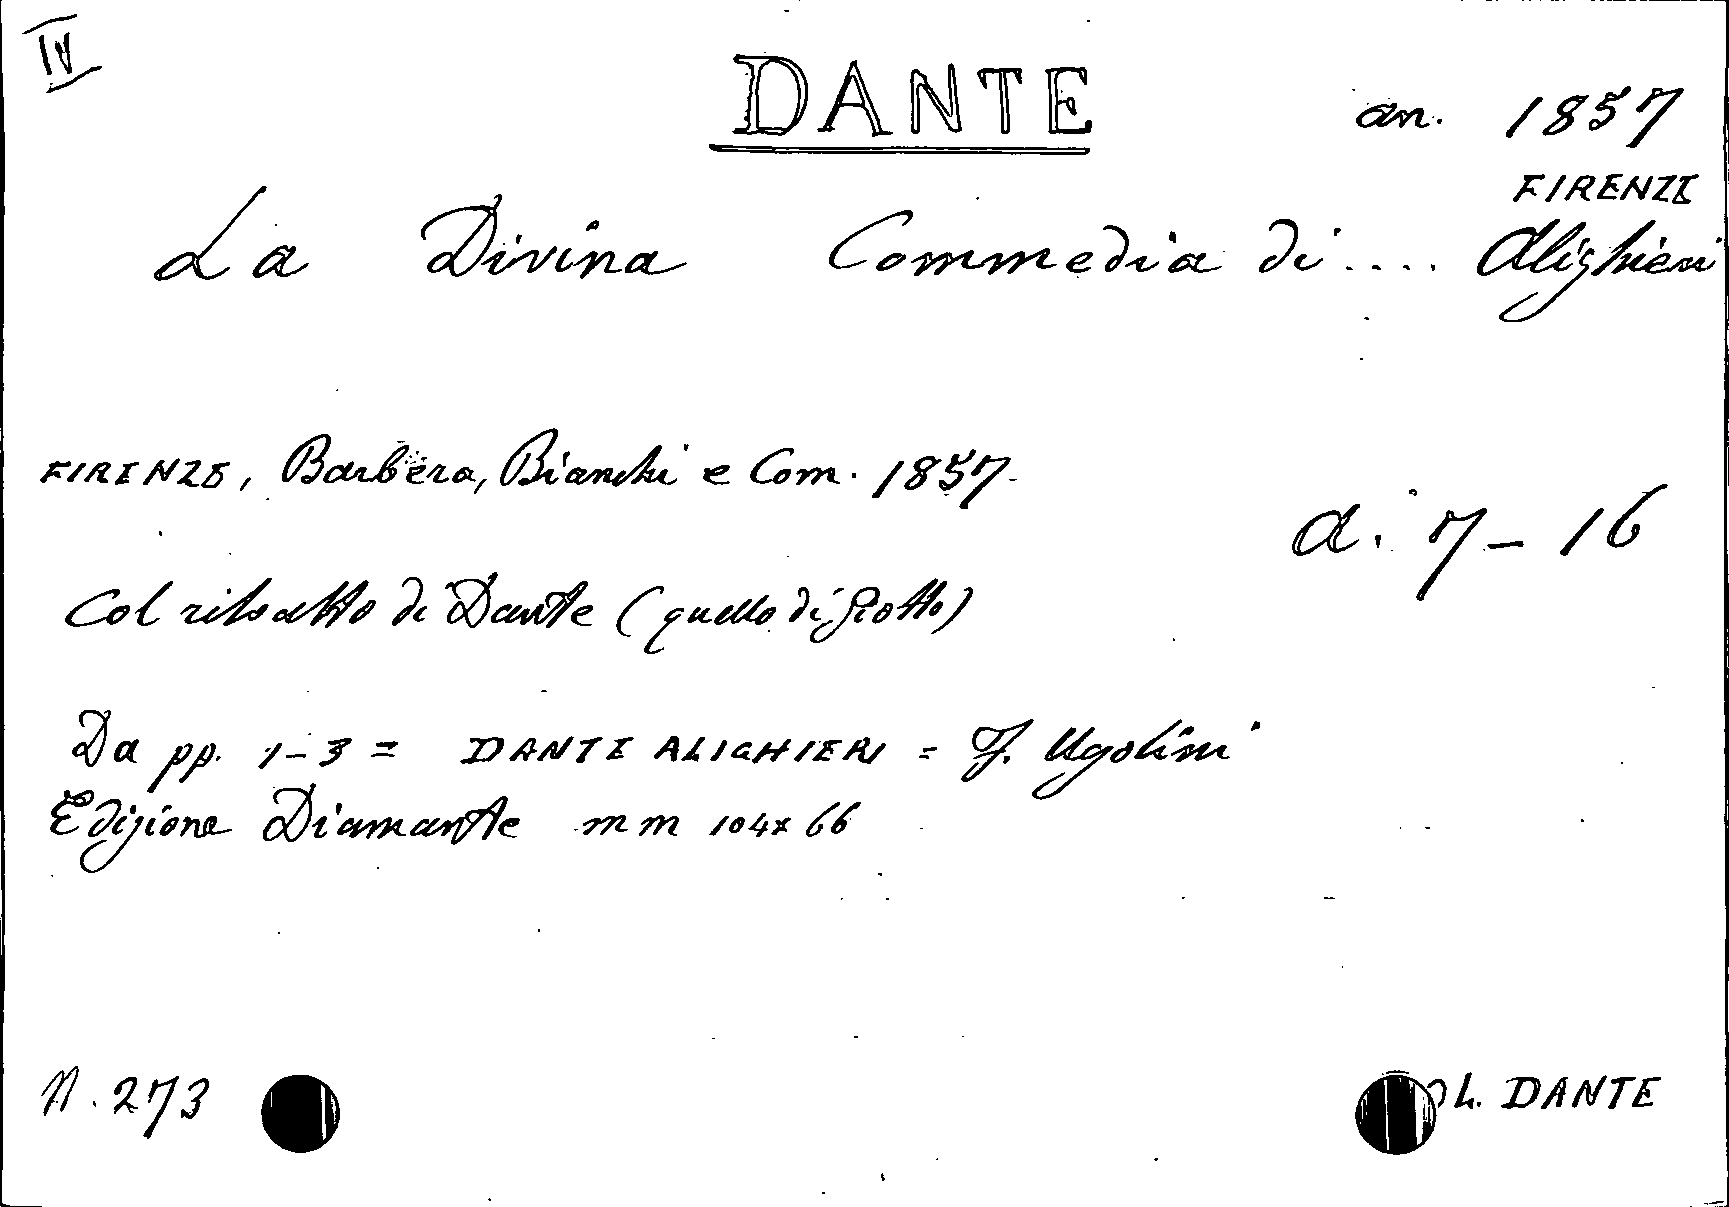 IV
DANTE
an. 1857
FIRENZE
La Divina Commedia di .... Alighieri
FIRENZE, Barbèra, Bianchi e Com. 1857
a. 7 - 16
Col ritratto di Dante (quello di Giotto)
Da pp. 1-3 = DANTE ALIGHIERI = F. Ugolini
Edizione Diamante mm 104x66
N. 273
DANTE